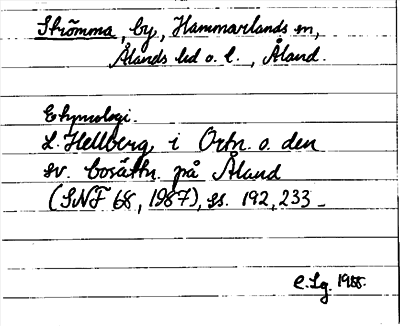 Strömma, by, Hammarlands sn,
Ålands hd o. l., Åland.
Etymologi.
L. Hellberg, i Ortn. o. den
sv. bosättn. på Åland
(SNF 68, 1987), ss. 192, 233
C. Lg. 1988.